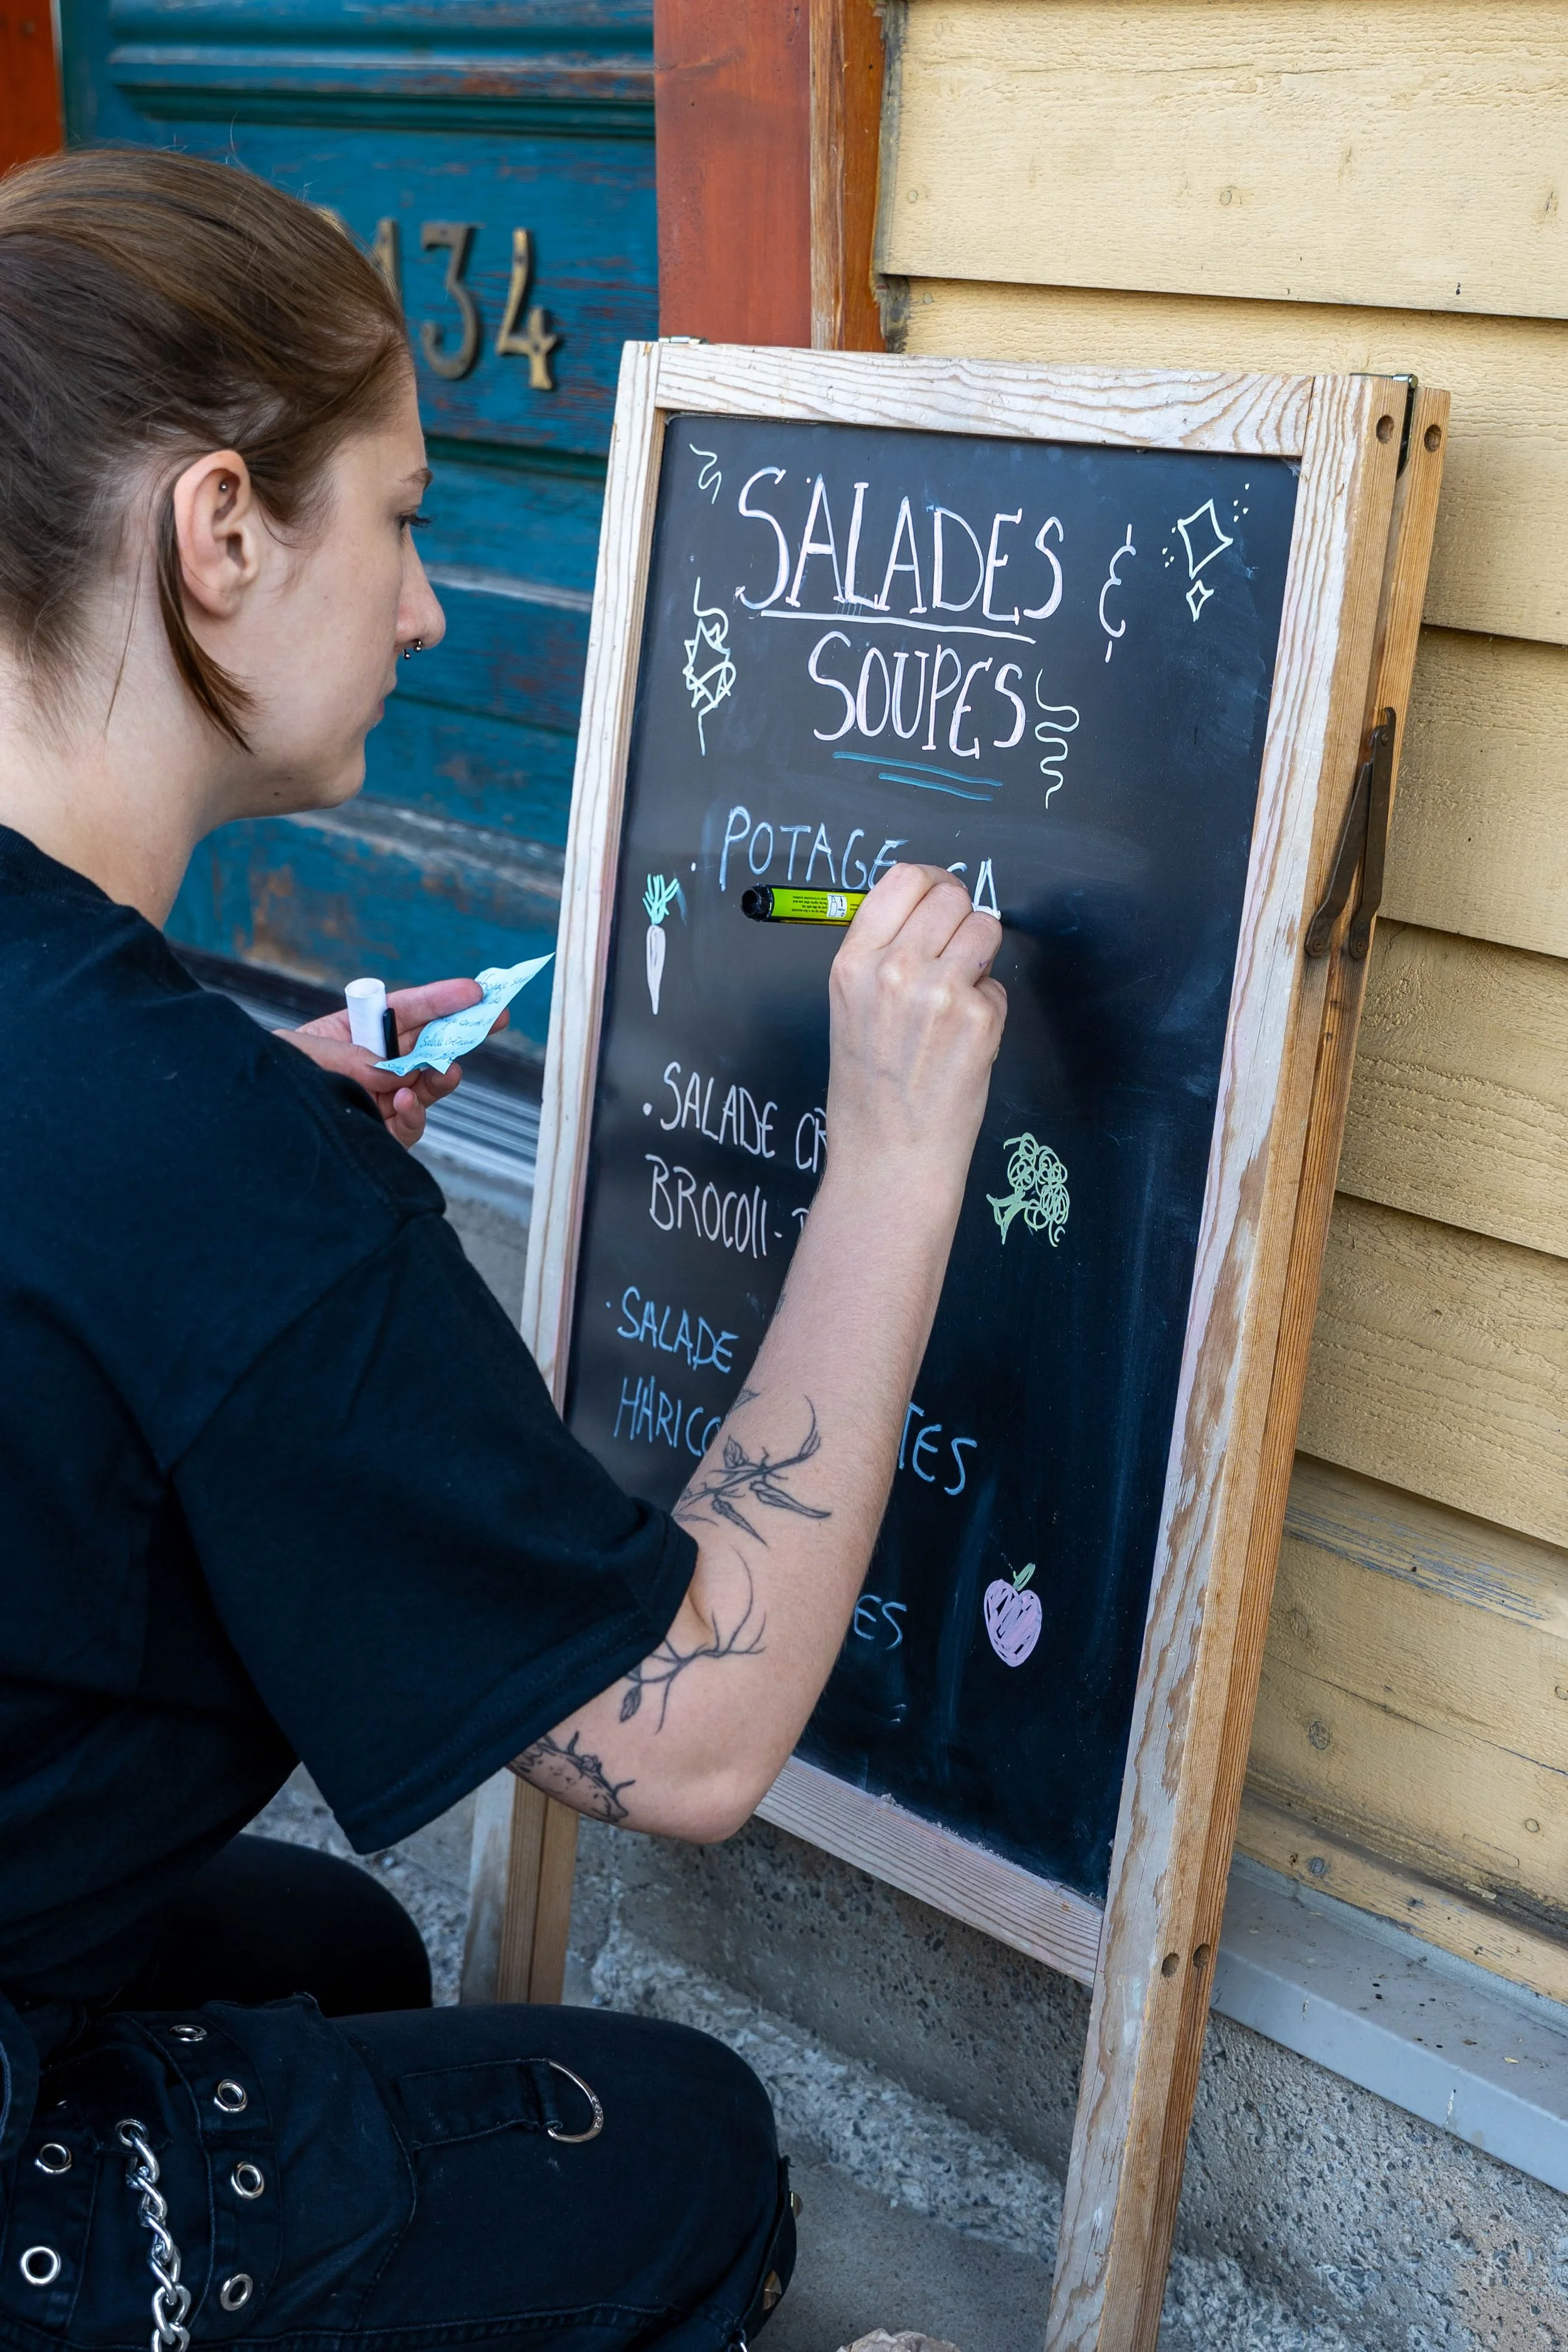 134
SALADES &
SOUPES
· POTAGE CA
· SALADE CR
BROCOli-
· SALADE
HARICO TES
ES